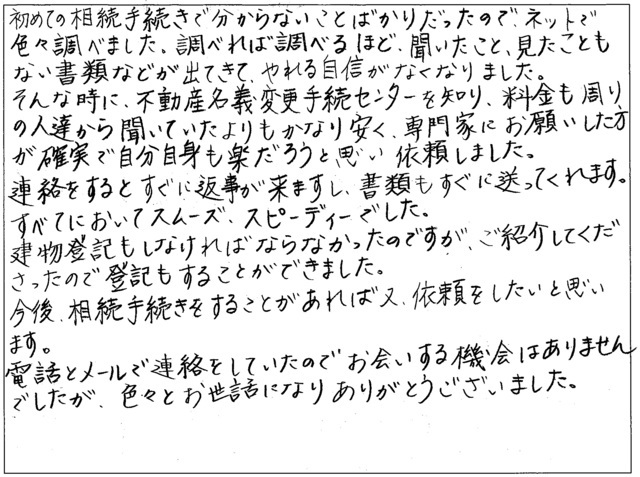 初めての相続手続きで分からないことばかりだったので、ネットで
色々調べました。調べれば調べるほど、聞いたこと、見たことも
ない書類などが出てきて、やれる自信がなくなりました。
そんな時に、不動産名義変更手続センターを知り、料金も周り
の人達から聞いていたよりもかなり安く、専門家にお願いした方
が確実で自分自身も楽だろうと思い依頼しました。
連絡をするとすぐに返事が来ますし、書類もすぐに送ってくれます。
すべてにおいてスムーズ、スピーディーでした。
建物登記もしなければならなかったのですが、ご紹介してくだ
さったので登記もすることができました。
今後、相続手続きをすることがあれば又、依頼をしたいと思い
ます。
電話とメールで連絡をしていたのでお会いする機会はありません
でしたが、色々とお世話になりありがとうございました。